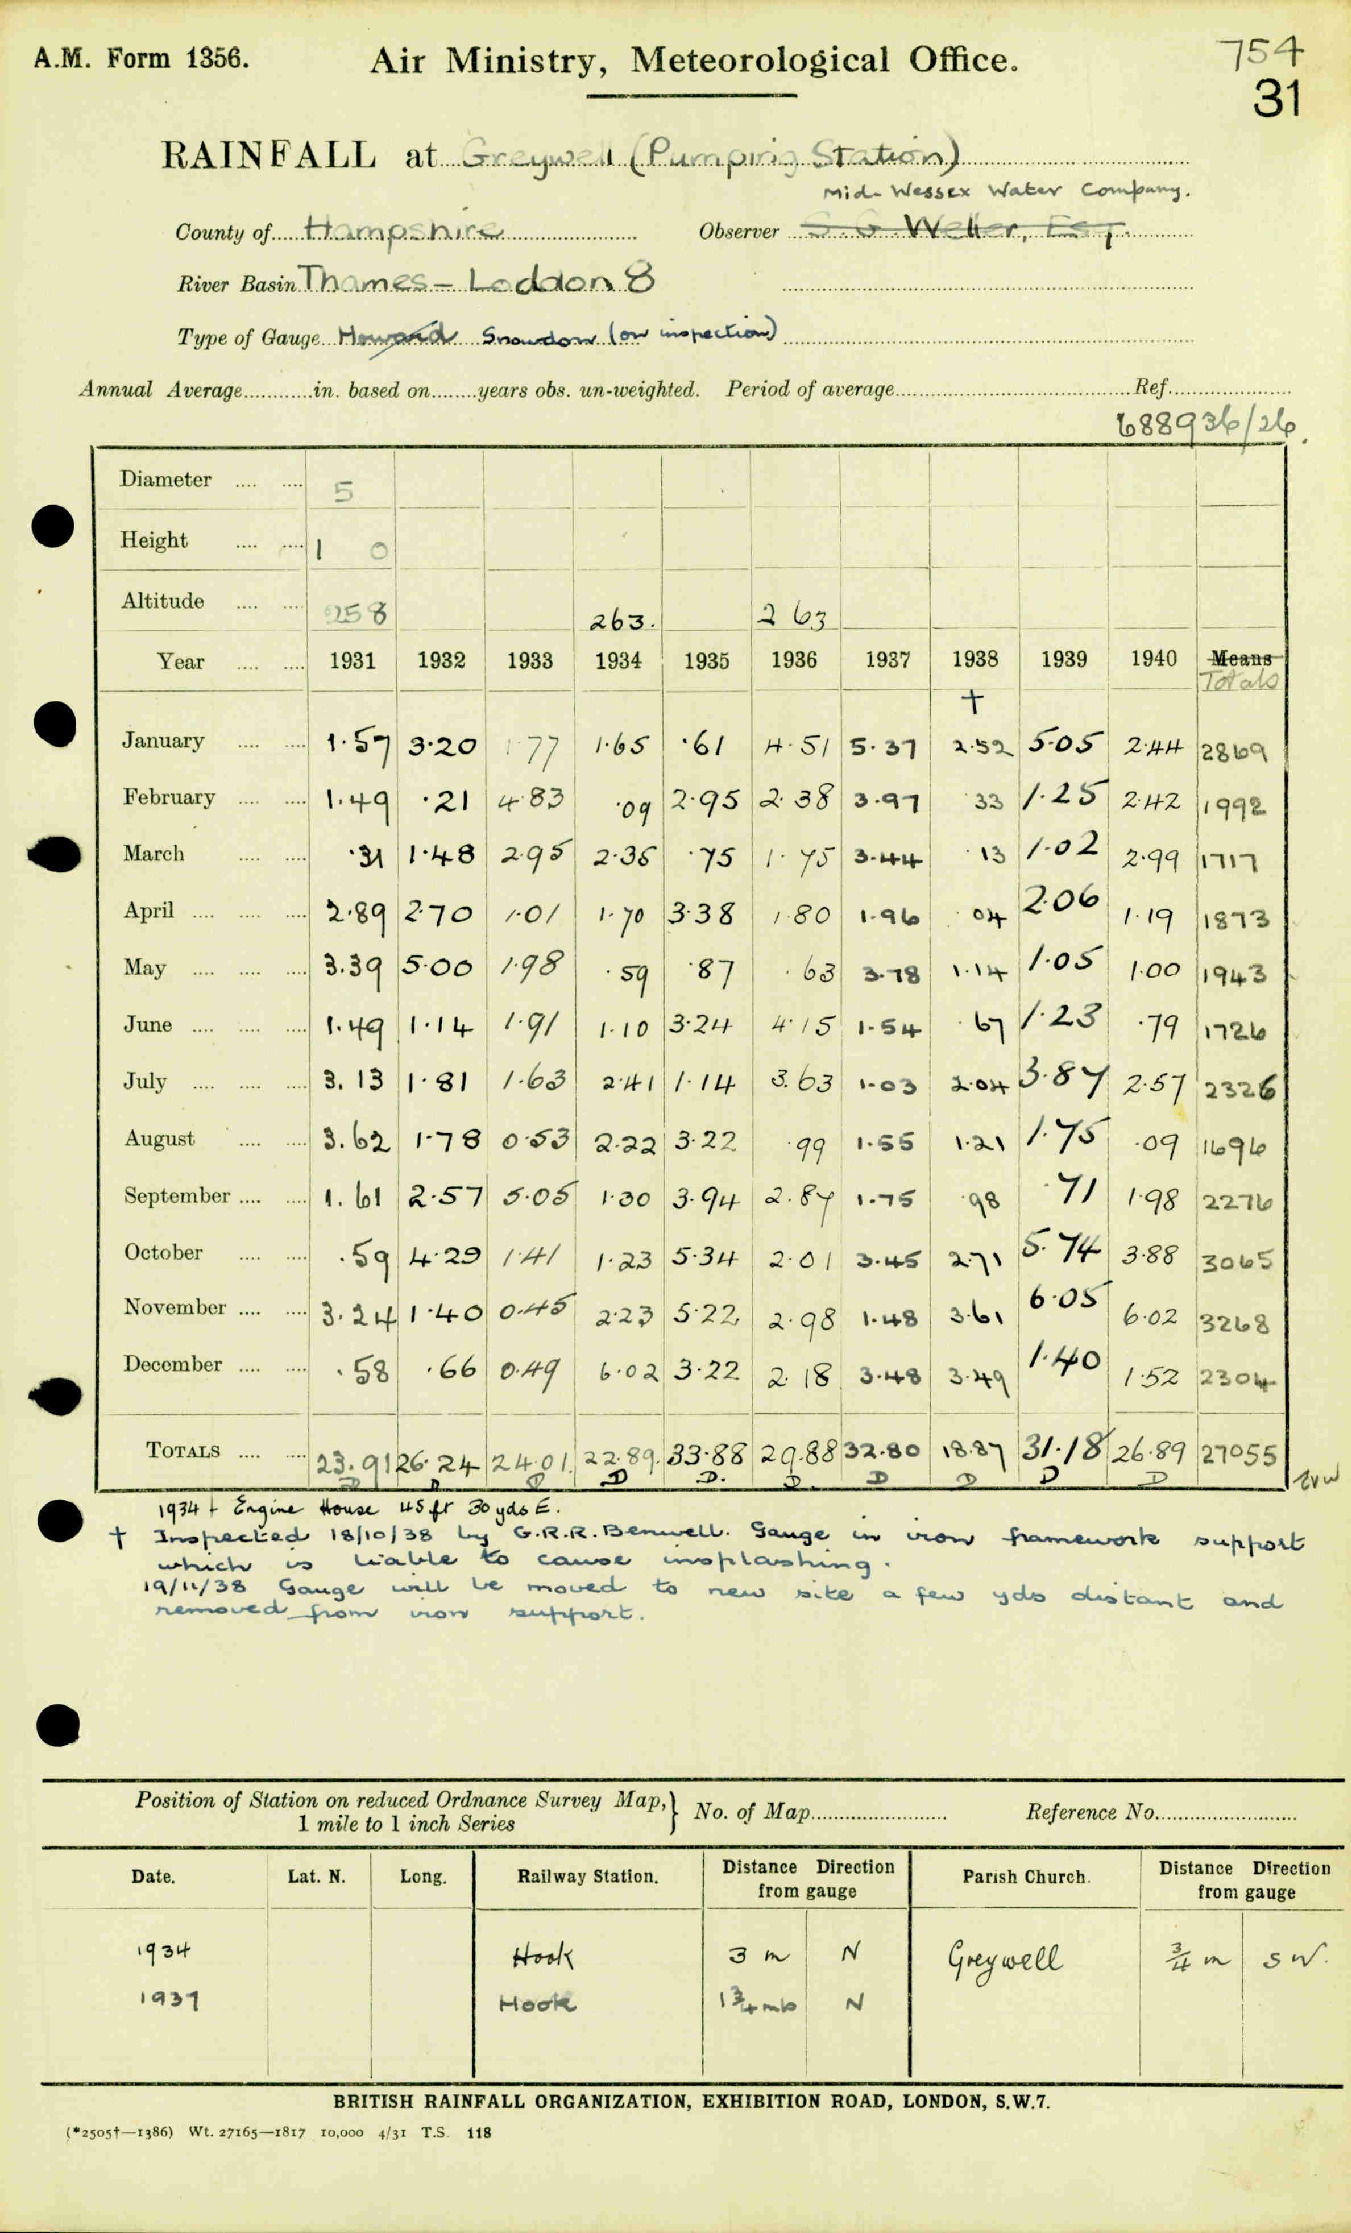 A.M. Form 1356.
Air Ministry, Meteorological Office.
754
31
RAINFALL at Greywell (Pumping Station)
Mid-Wessex Water Company.
County of Hampshire Observer S. G. Weller, Esq.
River Basin Thames - Loddon 8
Type of Gauge Howard Snowdon (on inspection)
Annual Average............in. based on........years obs. un-weighted. Period of average........Ref........
688936/26.
Diameter 5
Height 1 0
Altitude 258 263. 263
Year 1931 1932 1933 1934 1935 1936 1937 1938 1939 1940 Means
Totals
†
January 1.57 3.20 1.77 1.65 .61 4.51 5.37 2.52 5.05 2.44 2869
February 1.49 .21 4.83 .09 2.95 2.38 3.97 .33 1.25 2.42 1992
March .31 1.48 2.95 2.35 .75 1.75 3.44 .13 1.02 2.99 1717
April 2.89 2.70 1.01 1.70 3.38 1.80 1.96 .04 2.06 1.19 1873
May 3.39 5.00 1.98 .59 .87 .63 3.78 1.14 1.05 1.00 1943
June 1.49 1.14 1.91 1.10 3.24 4.15 1.54 .67 1.23 .79 1726
July 3.13 1.81 1.63 2.41 1.14 3.63 1.03 2.04 3.87 2.57 2326
August 3.62 1.78 0.53 2.22 3.22 .99 1.55 1.21 1.75 .09 1696
September 1.61 2.57 5.05 1.30 3.94 2.87 1.75 .98 .71 1.98 2276
October .59 4.29 1.41 1.23 5.34 2.01 3.45 2.71 5.74 3.88 3065
November 3.24 1.40 0.45 2.23 5.22 2.98 1.48 3.61 6.05 6.02 3268
December .58 .66 0.49 6.02 3.22 2.18 3.48 3.49 1.40 1.52 2304
TOTALS 23.91 26.24 24.01 22.89 33.88 29.88 32.80 18.87 31.18 26.89 27055
D D D D D. D. D D D D
1934 † Engine House 45 ft 30 yds E.
† Inspected 18/10/38 by G.R.R. Benwell. Gauge in iron framework support
which is liable to cause insplashing.
19/11/38 Gauge will be moved to new site a few yds distant and
removed from iron support.
Position of Station on reduced Ordnance Survey Map,} No. of Map........ Reference No........
1 mile to 1 inch Series
Date. Lat. N. Long. Railway Station. Distance Direction from gauge Parish Church. Distance Direction from gauge
1934 Hook 3 m N Greywell 3/4 m SW.
1937 Hook 1 3/4 mls N
BRITISH RAINFALL ORGANIZATION, EXHIBITION ROAD, LONDON, S.W.7.
(*2505†—1386) Wt. 27165—1817 10,000 4/31 T.S. 118